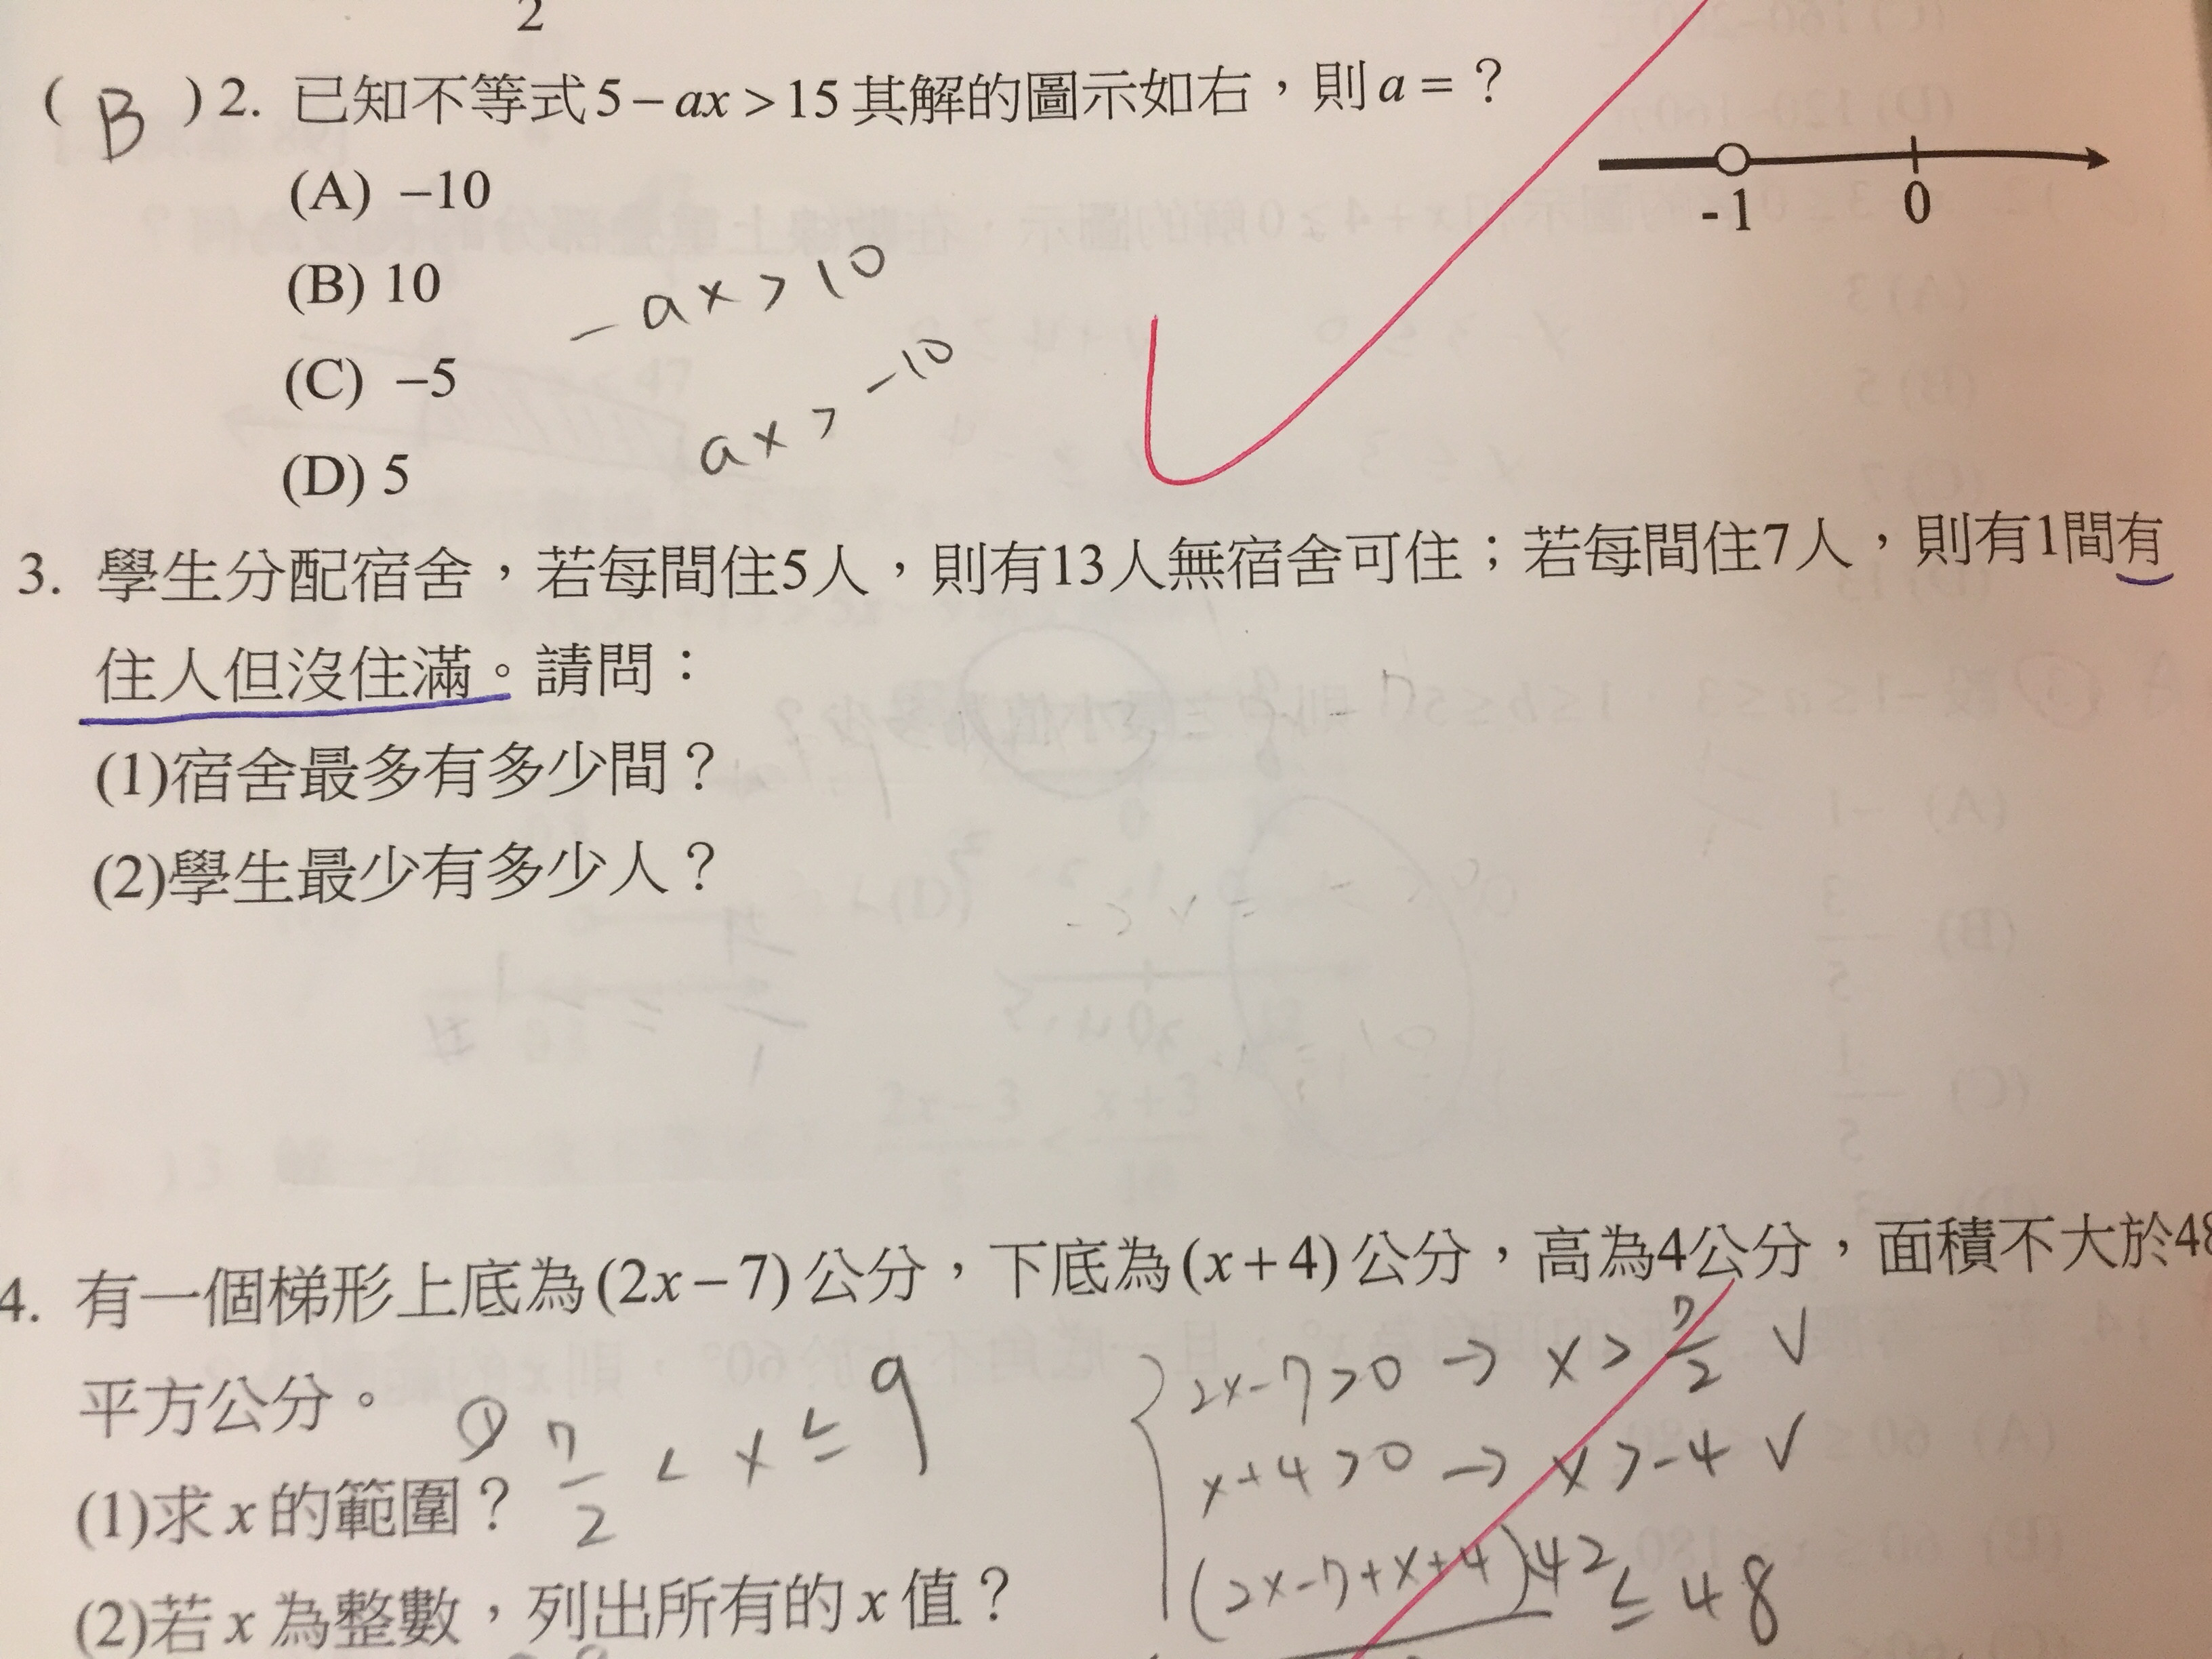 2
( B ) 2. 已知不等式 5 − ax > 15 其解的圖示如右，則 a = ？
-1 0
(A) −10
(B) 10
(C) −5
(D) 5
−ax > 10
ax > −10
3. 學生分配宿舍，若每間住5人，則有13人無宿舍可住；若每間住7人，則有1間有
住人但沒住滿。請問：
(1)宿舍最多有多少間？
(2)學生最少有多少人？
4. 有一個梯形上底為 (2x − 7) 公分，下底為 (x + 4) 公分，高為4公分，面積不大於48
平方公分。
(1)求 x 的範圍？
① 7/2 < x ≤ 9
2x−7>0 → x > 7/2 ✓
x+4>0 → x > −4 ✓
(2x−7+x+4)4 2 ≤ 48
(2)若 x 為整數，列出所有的 x 值？